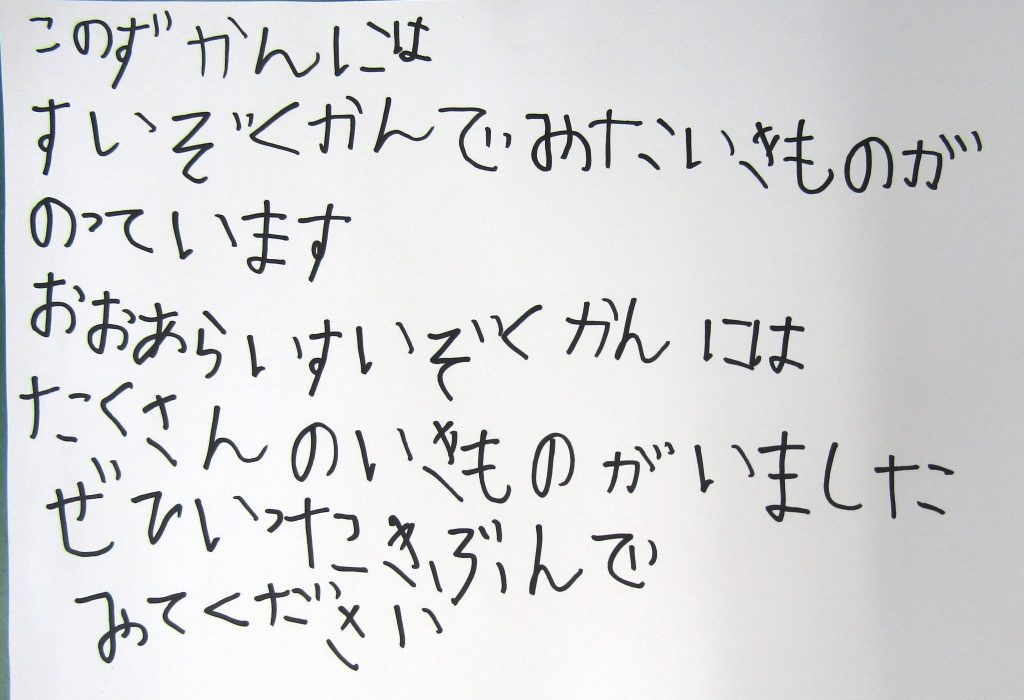 このずかんには
すいぞくかんでみたいきものが
のっています
おおあらいすいぞくかんには
たくさんのいきものがいました
ぜひいったきぶんで
みてください